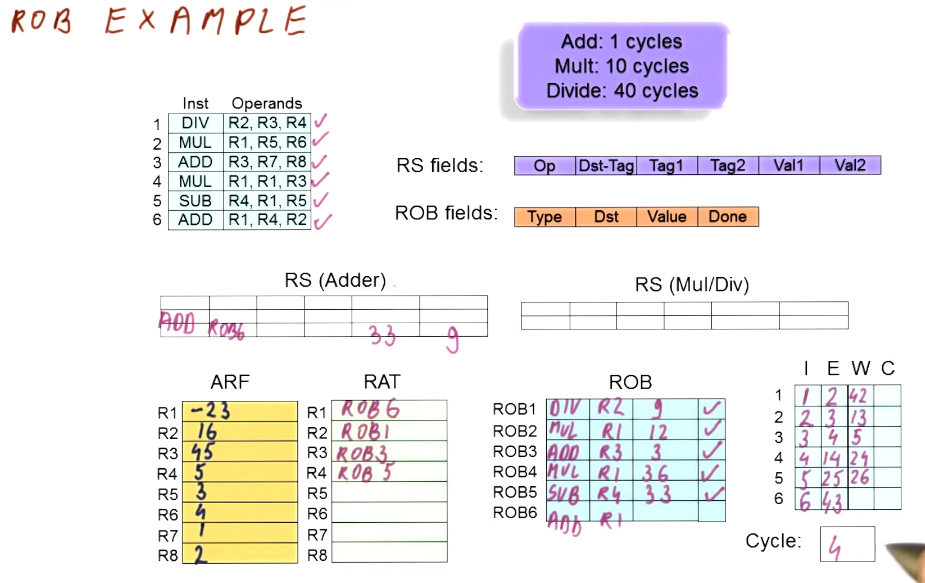 ROB EXAMPLE
Add: 1 cycles
Mult: 10 cycles
Divide: 40 cycles
Inst Operands
1 DIV R2, R3, R4 ✓
2 MUL R1, R5, R6 ✓
3 ADD R3, R7, R8 ✓
4 MUL R1, R1, R3 ✓
5 SUB R4, R1, R5 ✓
6 ADD R1, R4, R2 ✓
RS fields: Op Dst-Tag Tag1 Tag2 Val1 Val2
ROB fields: Type Dst Value Done
RS (Adder)
ADD ROB6 33 9
RS (Mul/Div)
ARF
R1 -23
R2 16
R3 45
R4 5
R5 3
R6 4
R7 1
R8 2
RAT
R1 ROB6
R2 ROB1
R3 ROB3
R4 ROB5
R5
R6
R7
R8
ROB
ROB1 DIV R2 9 ✓
ROB2 MUL R1 12 ✓
ROB3 ADD R3 3 ✓
ROB4 MUL R1 36 ✓
ROB5 SUB R4 33 ✓
ROB6 ADD R1
I E W C
1 1 2 42
2 2 3 13
3 3 4 5
4 4 14 24
5 5 25 26
6 6 43
Cycle: 4